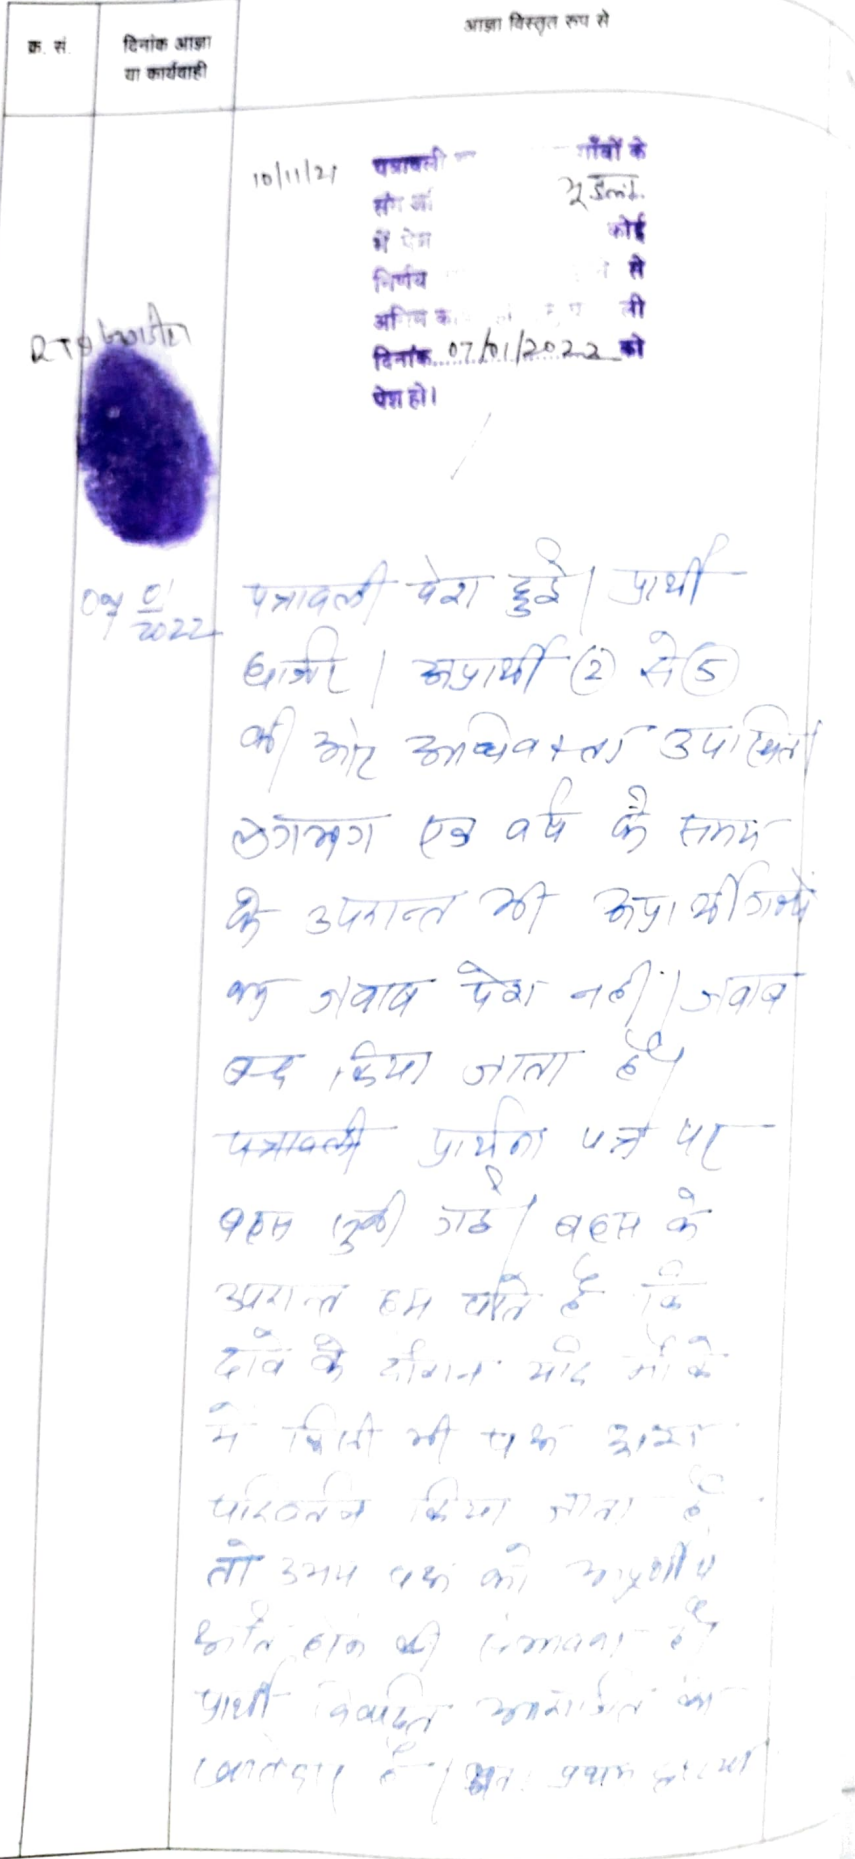 क्र. सं.
दिनांक आज्ञा
या कार्यवाही
आज्ञा विस्तृत रूप से
10/11/21
पत्रावली गाँवों के
संग
में पेश कोई
निर्णय से
ली
दिनांक 07/01/2022 को
पेश हो।
07/01/2022
पत्रावली पेश हुई। प्रार्थी
हाजिर। अप्रार्थी 2 से 5
की ओर अधिवक्ता उपस्थित।
लगभग एक वर्ष के समय
के उपरान्त भी अप्रार्थीगणों
का जवाब पेश नहीं। जवाब
बन्द किया जाता है।
पत्रावली प्रार्थना पत्र पर
बहस सुनी गई। बहस के
उपरान्त हम पाते हैं कि
दावे के दौरान यदि मौके
में किसी भी पक्ष द्वारा
परिवर्तन किया जाता है
तो उभय पक्ष को अपूर्णीय
क्षति होने की संभावना है।
प्रार्थी विवादित आराजियात का
खातेदार है। अतः प्रथम दृष्टया